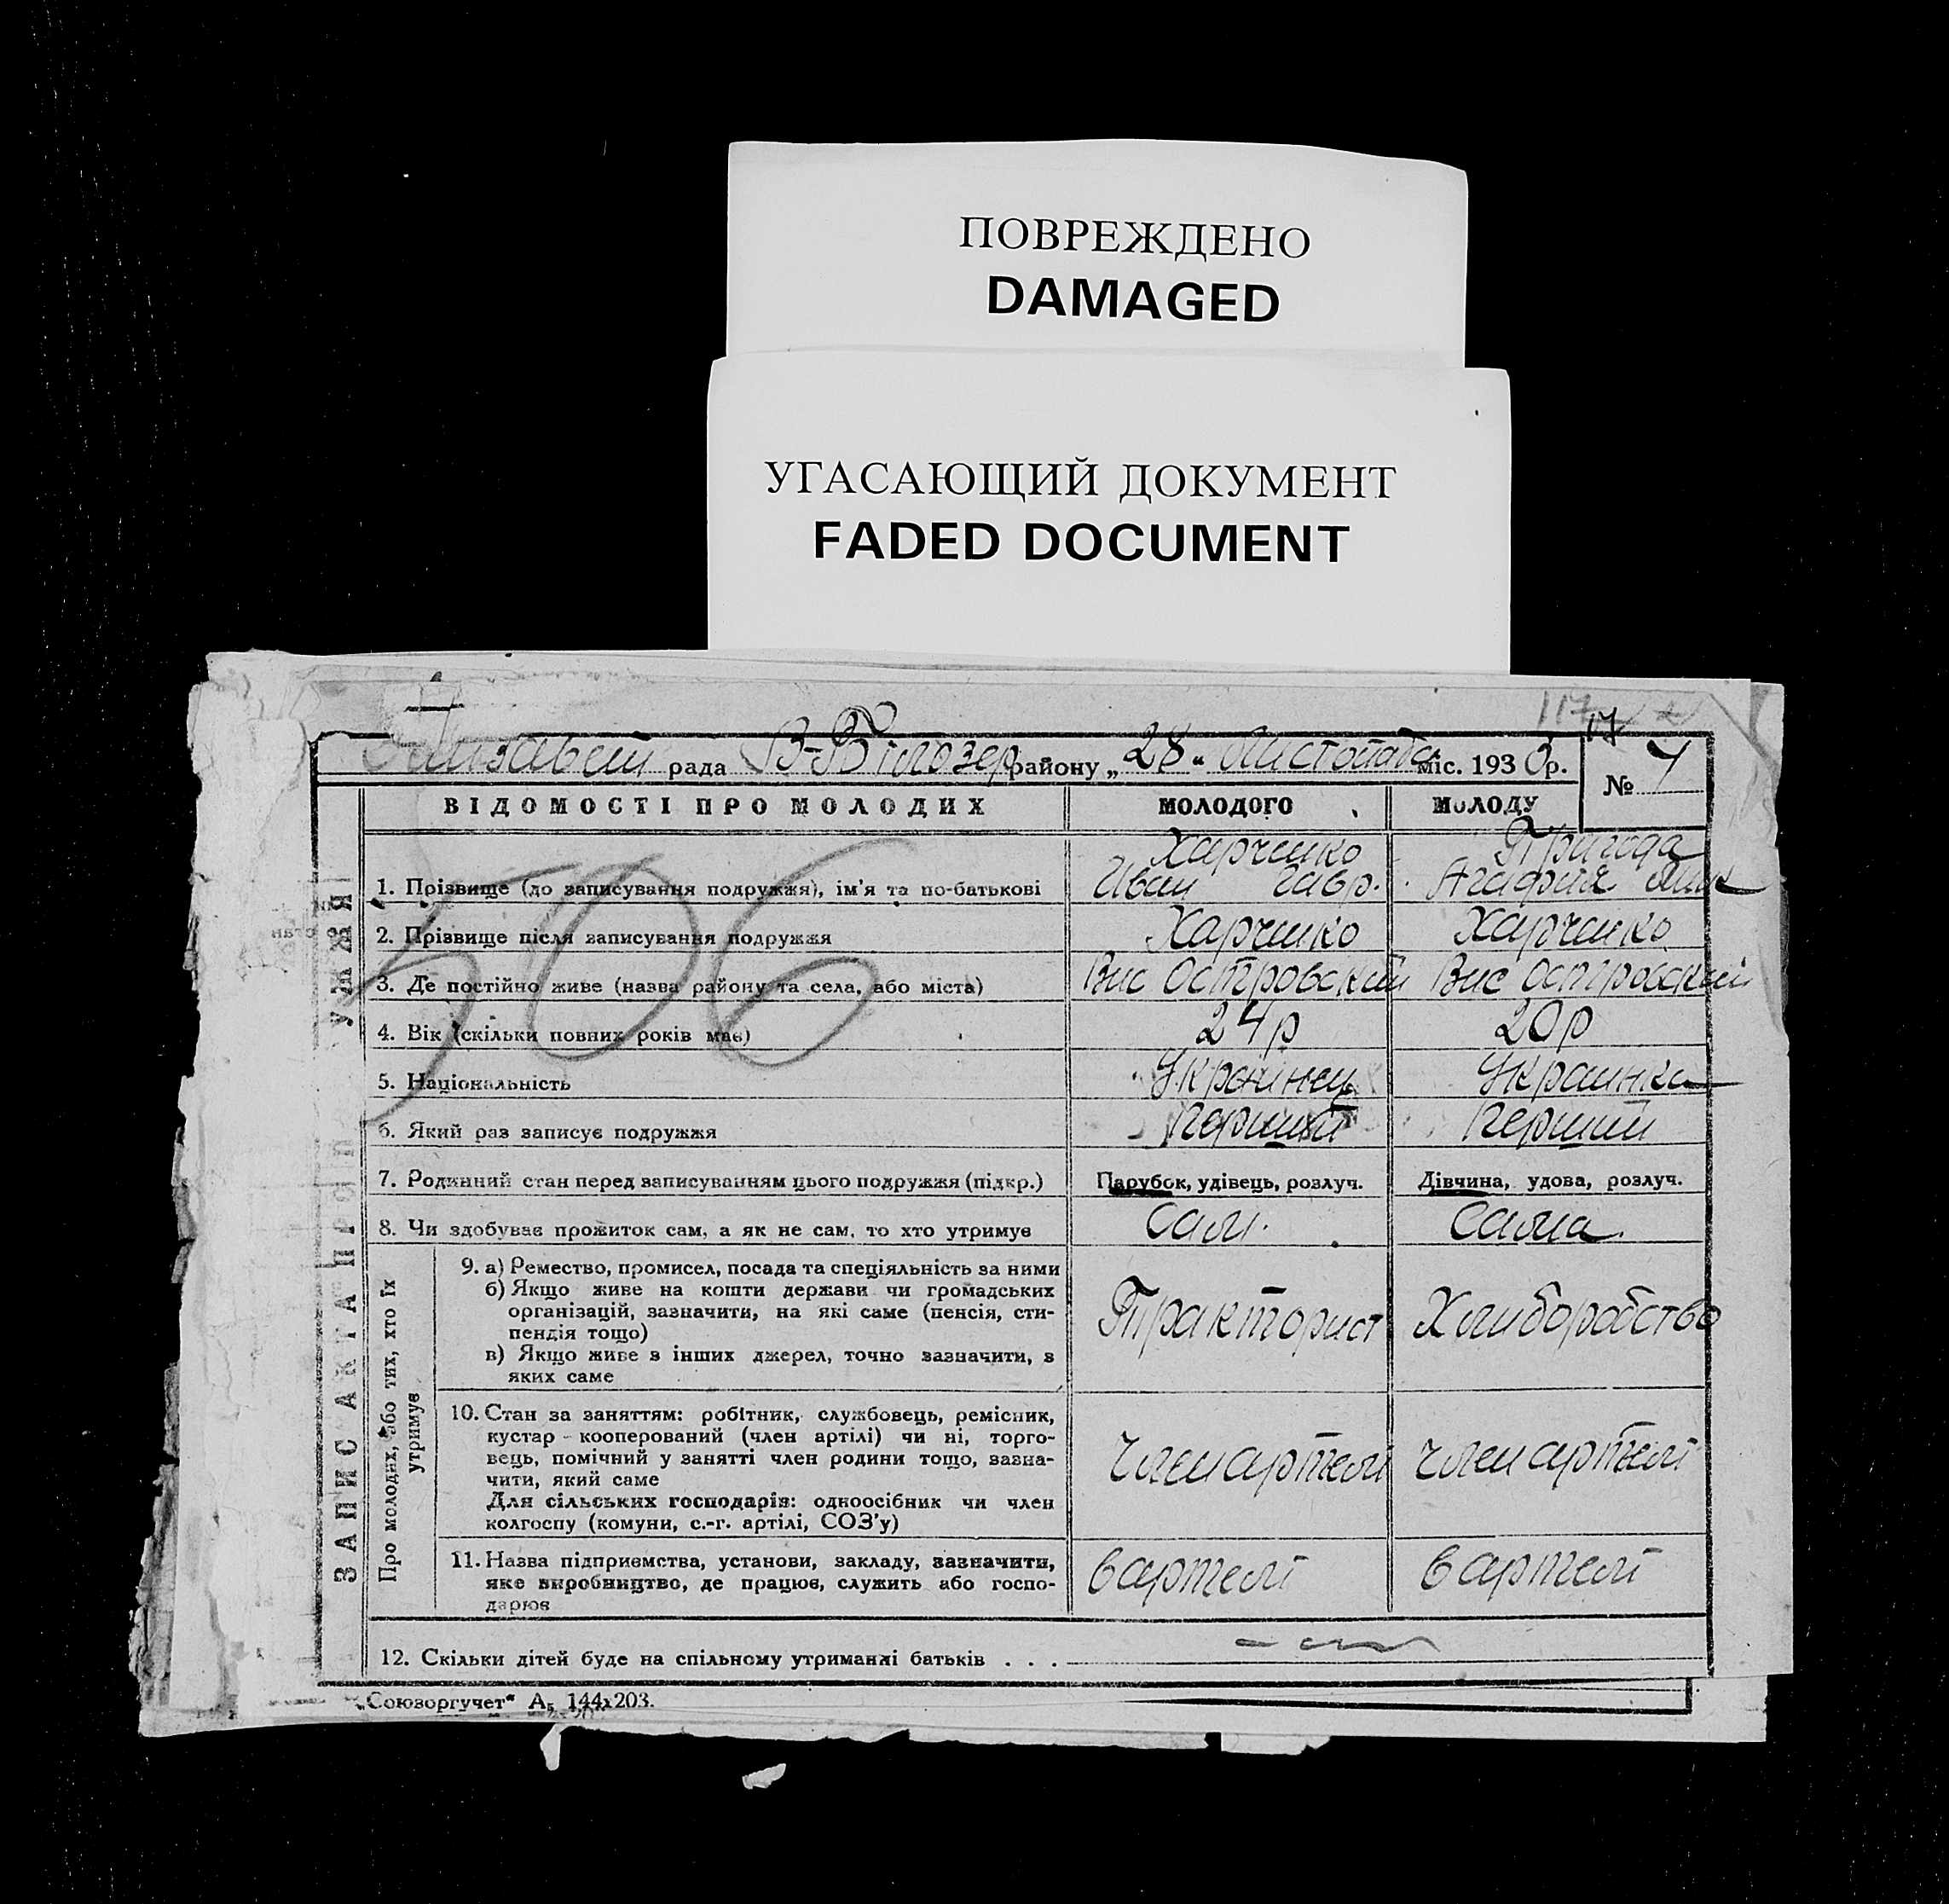 ПОВРЕЖДЕНО
DAMAGED
УГАСАЮЩИЙ ДОКУМЕНТ
FADED DOCUMENT
117
17
рада В-Білозер району „28" Листопада міс. 1933р.
№ 7
ВІДОМОСТІ ПРО МОЛОДИХ МОЛОДОГО МОЛОДУ
ЗАПИС АКТА ПРО
506
1. Прізвище (до записування подружжя), ім'я та по-батькові Харченко Иван Гавр. Пригода Агафия
2. Прізвище після записування подружжя Харченко Харченко
3. Де постійно живе (назва району та села, або міста) Вис Островский Вис Островский
4. Вік (скільки повних років має) 24р 20р
5. Національність Українец Украинка
6. Який раз записує подружжя Перший Перший
7. Родинний стан перед записуванням цього подружжя (підкр.) Парубок, удівець, розлуч. Дівчина, удова, розлуч.
8. Чи здобуває прожиток сам, а як не сам, то хто утримує Сам. Сама.
Про молодих, або тих, хто їх утримує
9. а) Ремество, промисел, посада та спеціяльність за ними
б) Якщо живе на кошти держави чи громадських
організацій, зазначити, на які саме (пенсія, сти-
пендія тощо)
в) Якщо живе з інших джерел, точно зазначити, з
яких саме
Тракторист Хлиборобство
10. Стан за заняттям: робітник, службовець, ремісник,
кустар-кооперований (член артілі) чи ні, торго-
вець, помічний у занятті член родини тощо, зазна-
чити, який саме
Для сільських господарів: одноосібник чи член
колгоспу (комуни, с.-г. артілі, СОЗ'у)
член артелі член артелі
11. Назва підприємства, установи, закладу, зазначити,
яке виробництво, де працює, служить або госпо-
дарює
в артелі в артелі
12. Скільки дітей буде на спільному утриманні батьків . . .
„Союзоргучет" А5 144х203.